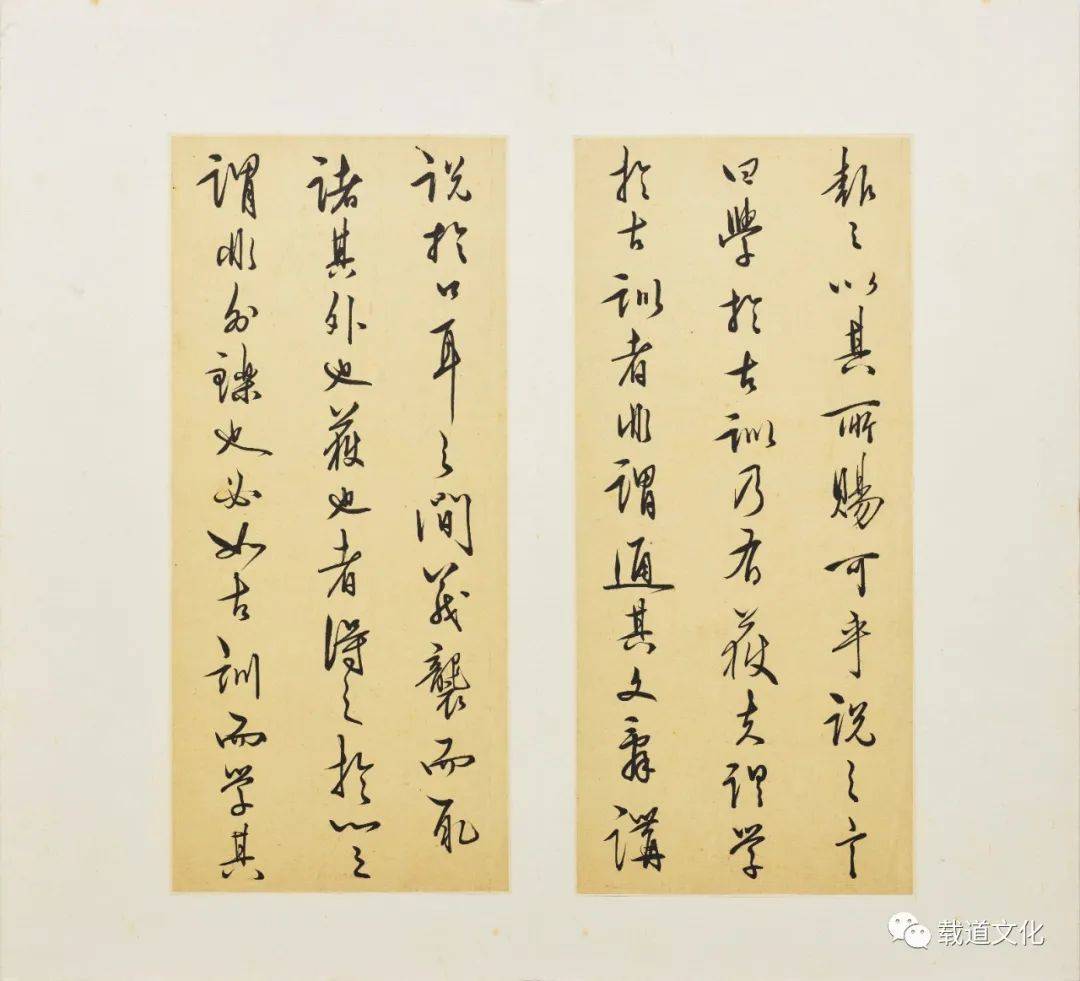 報之以其所賜可乎説之言
曰學於古訓乃有獲夫謂学
於古訓者非謂通其文辭講
説於口耳之間義襲而取
諸其外也獲也者得之於心之
謂非外鑠也必如古訓而学其
载道文化